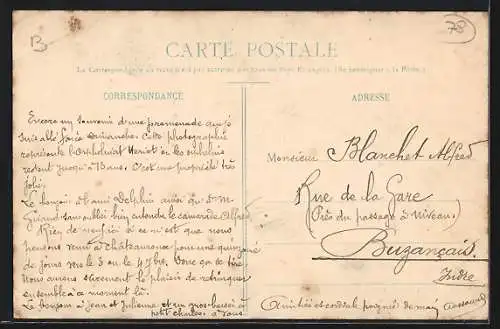 B
78
CARTE POSTALE
La Correspondance au recto n'est pas acceptée par tous les Pays Etrangers. (Se renseigner à la Poste)
CORRESPONDANCE
ADRESSE
Encore un souvenir d'une promenade que j'ai
faite dimanche. Cette photographie
représente l'orphelinat Hériot où les enfants
restent jusqu'à 13 ans. C'est une propriété très
jolie.
Le bonjour à l'ami Delphin ainsi qu'à M
Giraud sans oublier bien entendu le camarade Alfred
Rien de neuf ici si ce n'est que nous
pensons venir à Châteauroux pour une quinzaine
de jours vers le 3 ou le 4 7bre.
Nous aurons sûrement le plaisir de
ensemble à ce moment là.
Le bonjour à Jean et Julienne et un gros baiser à
petit Charles. à vous
Monsieur Blanchet Alfred
Rue de la Gare
(Près du passage à Niveau)
Buzançais
Indre
Amitiés et cordiale poignée de main